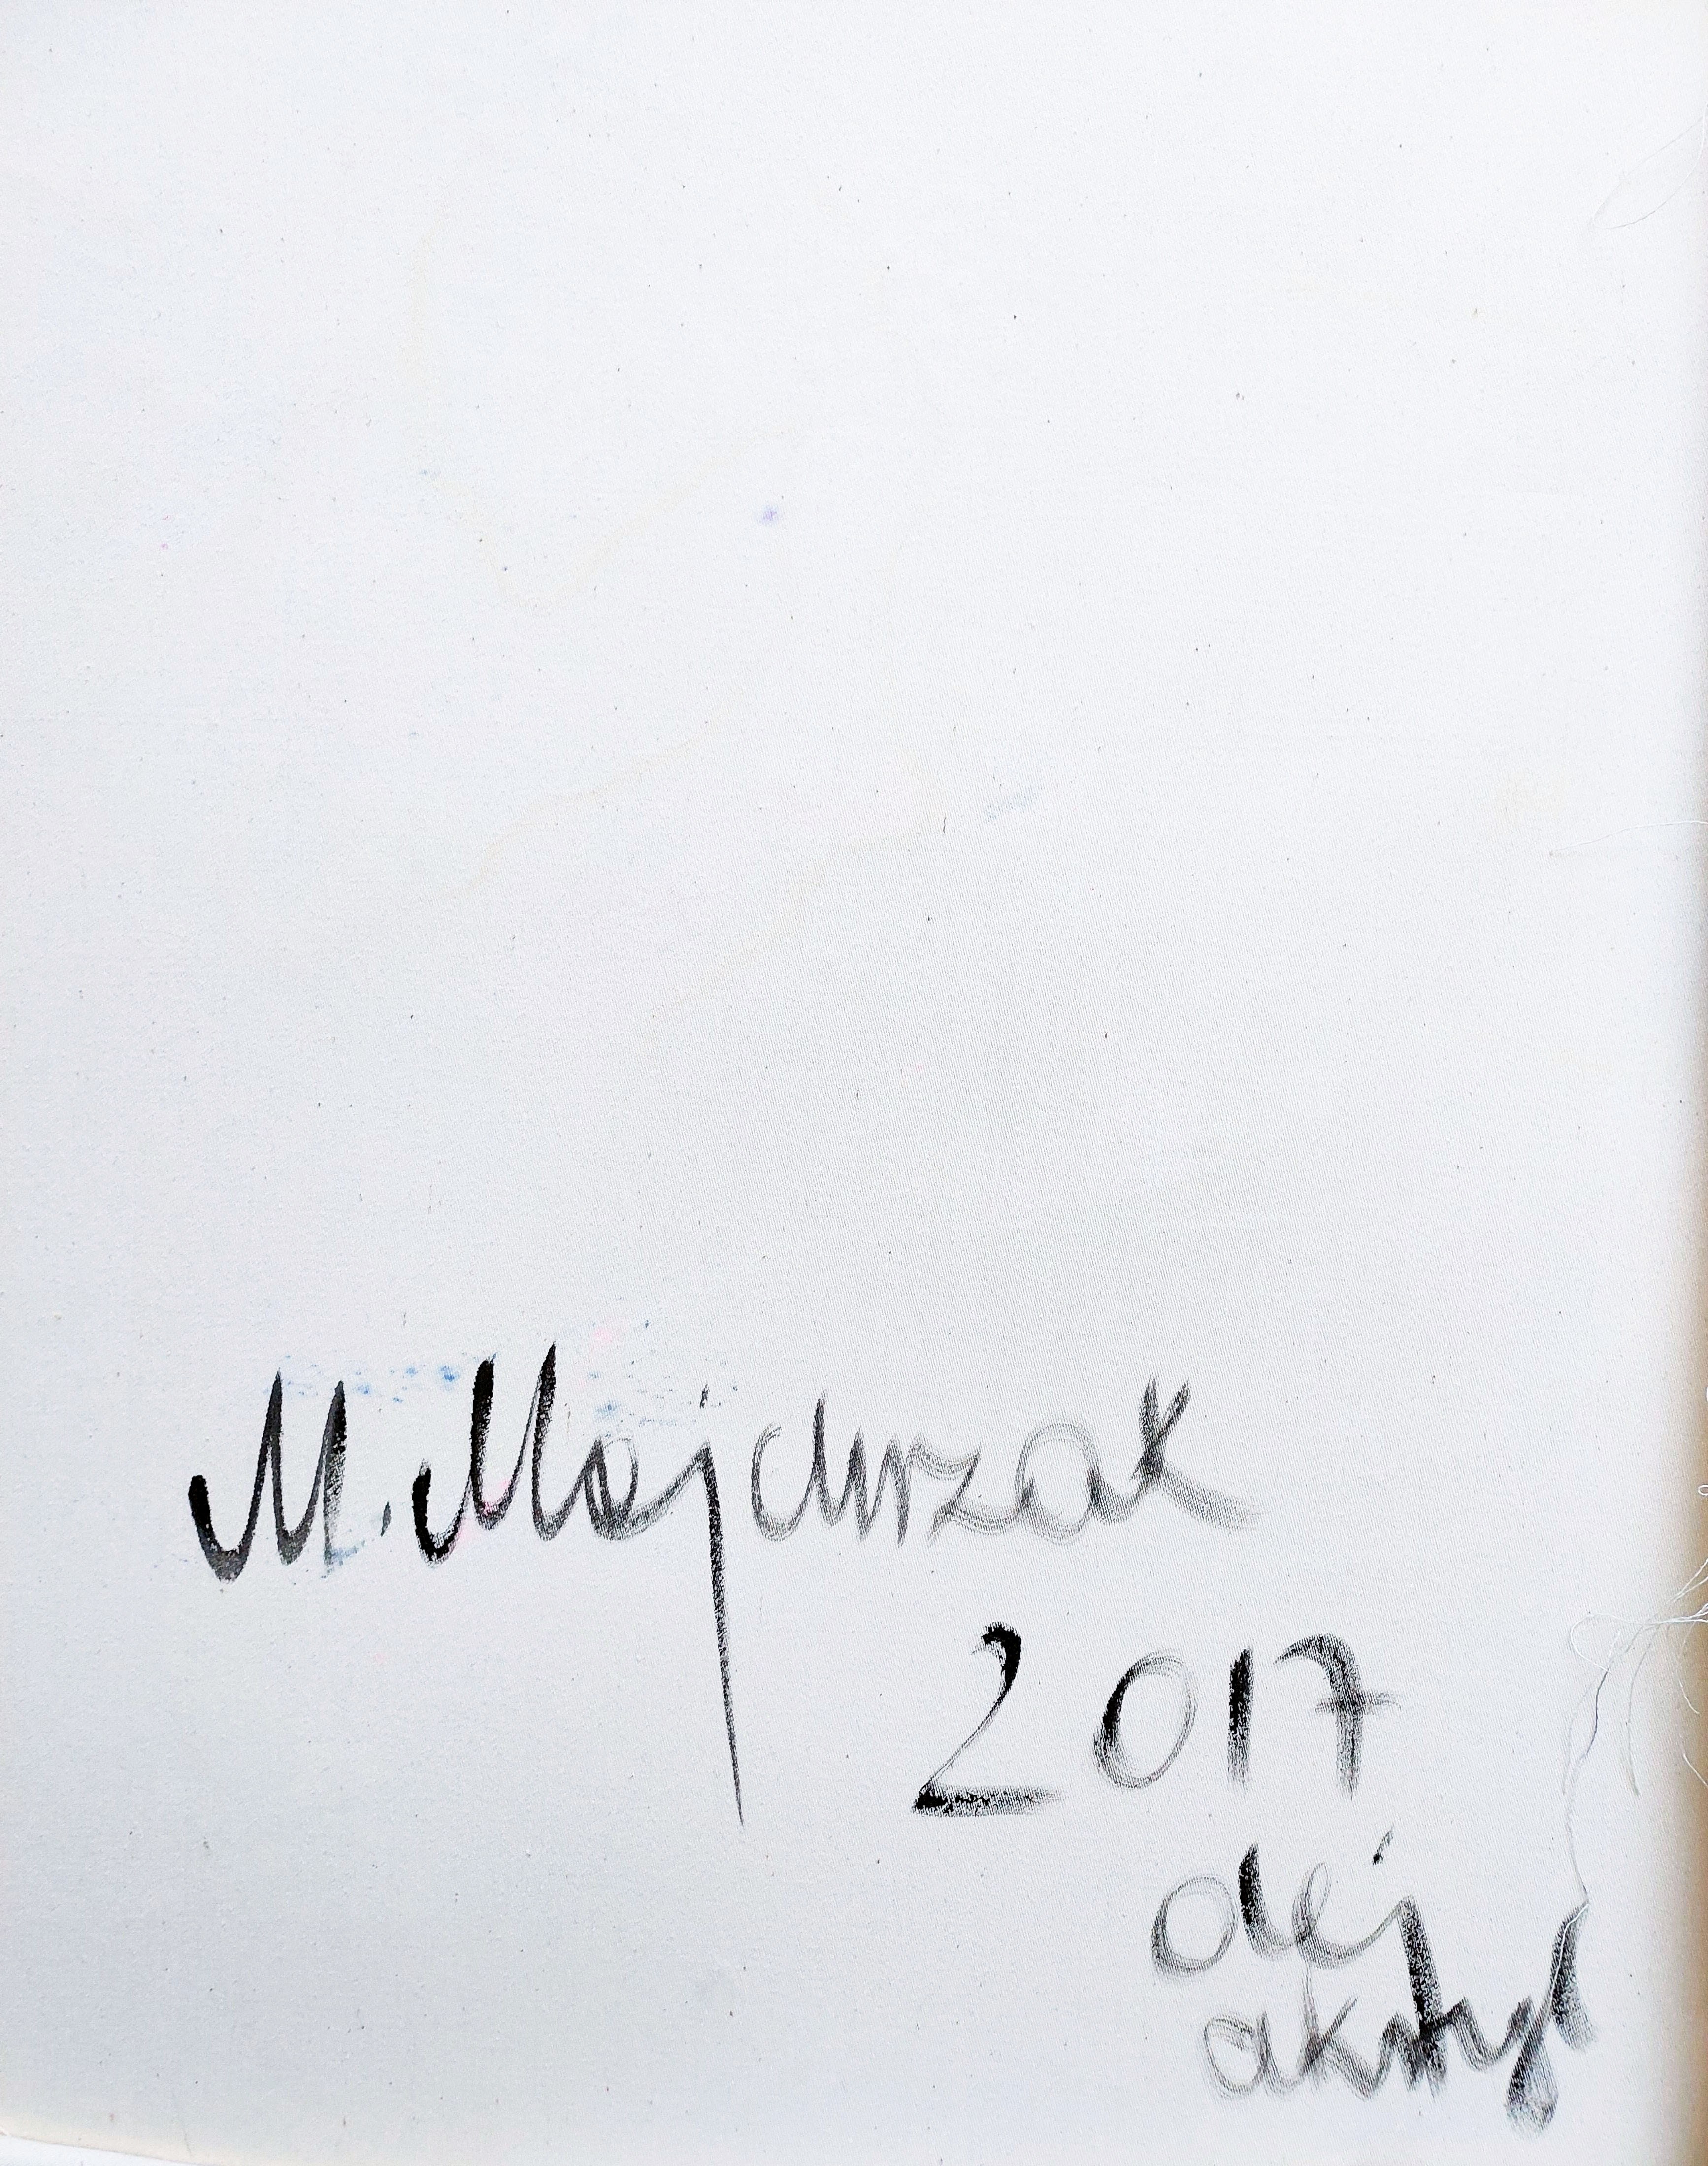 M. Majchrzak
2017
olej
akryl